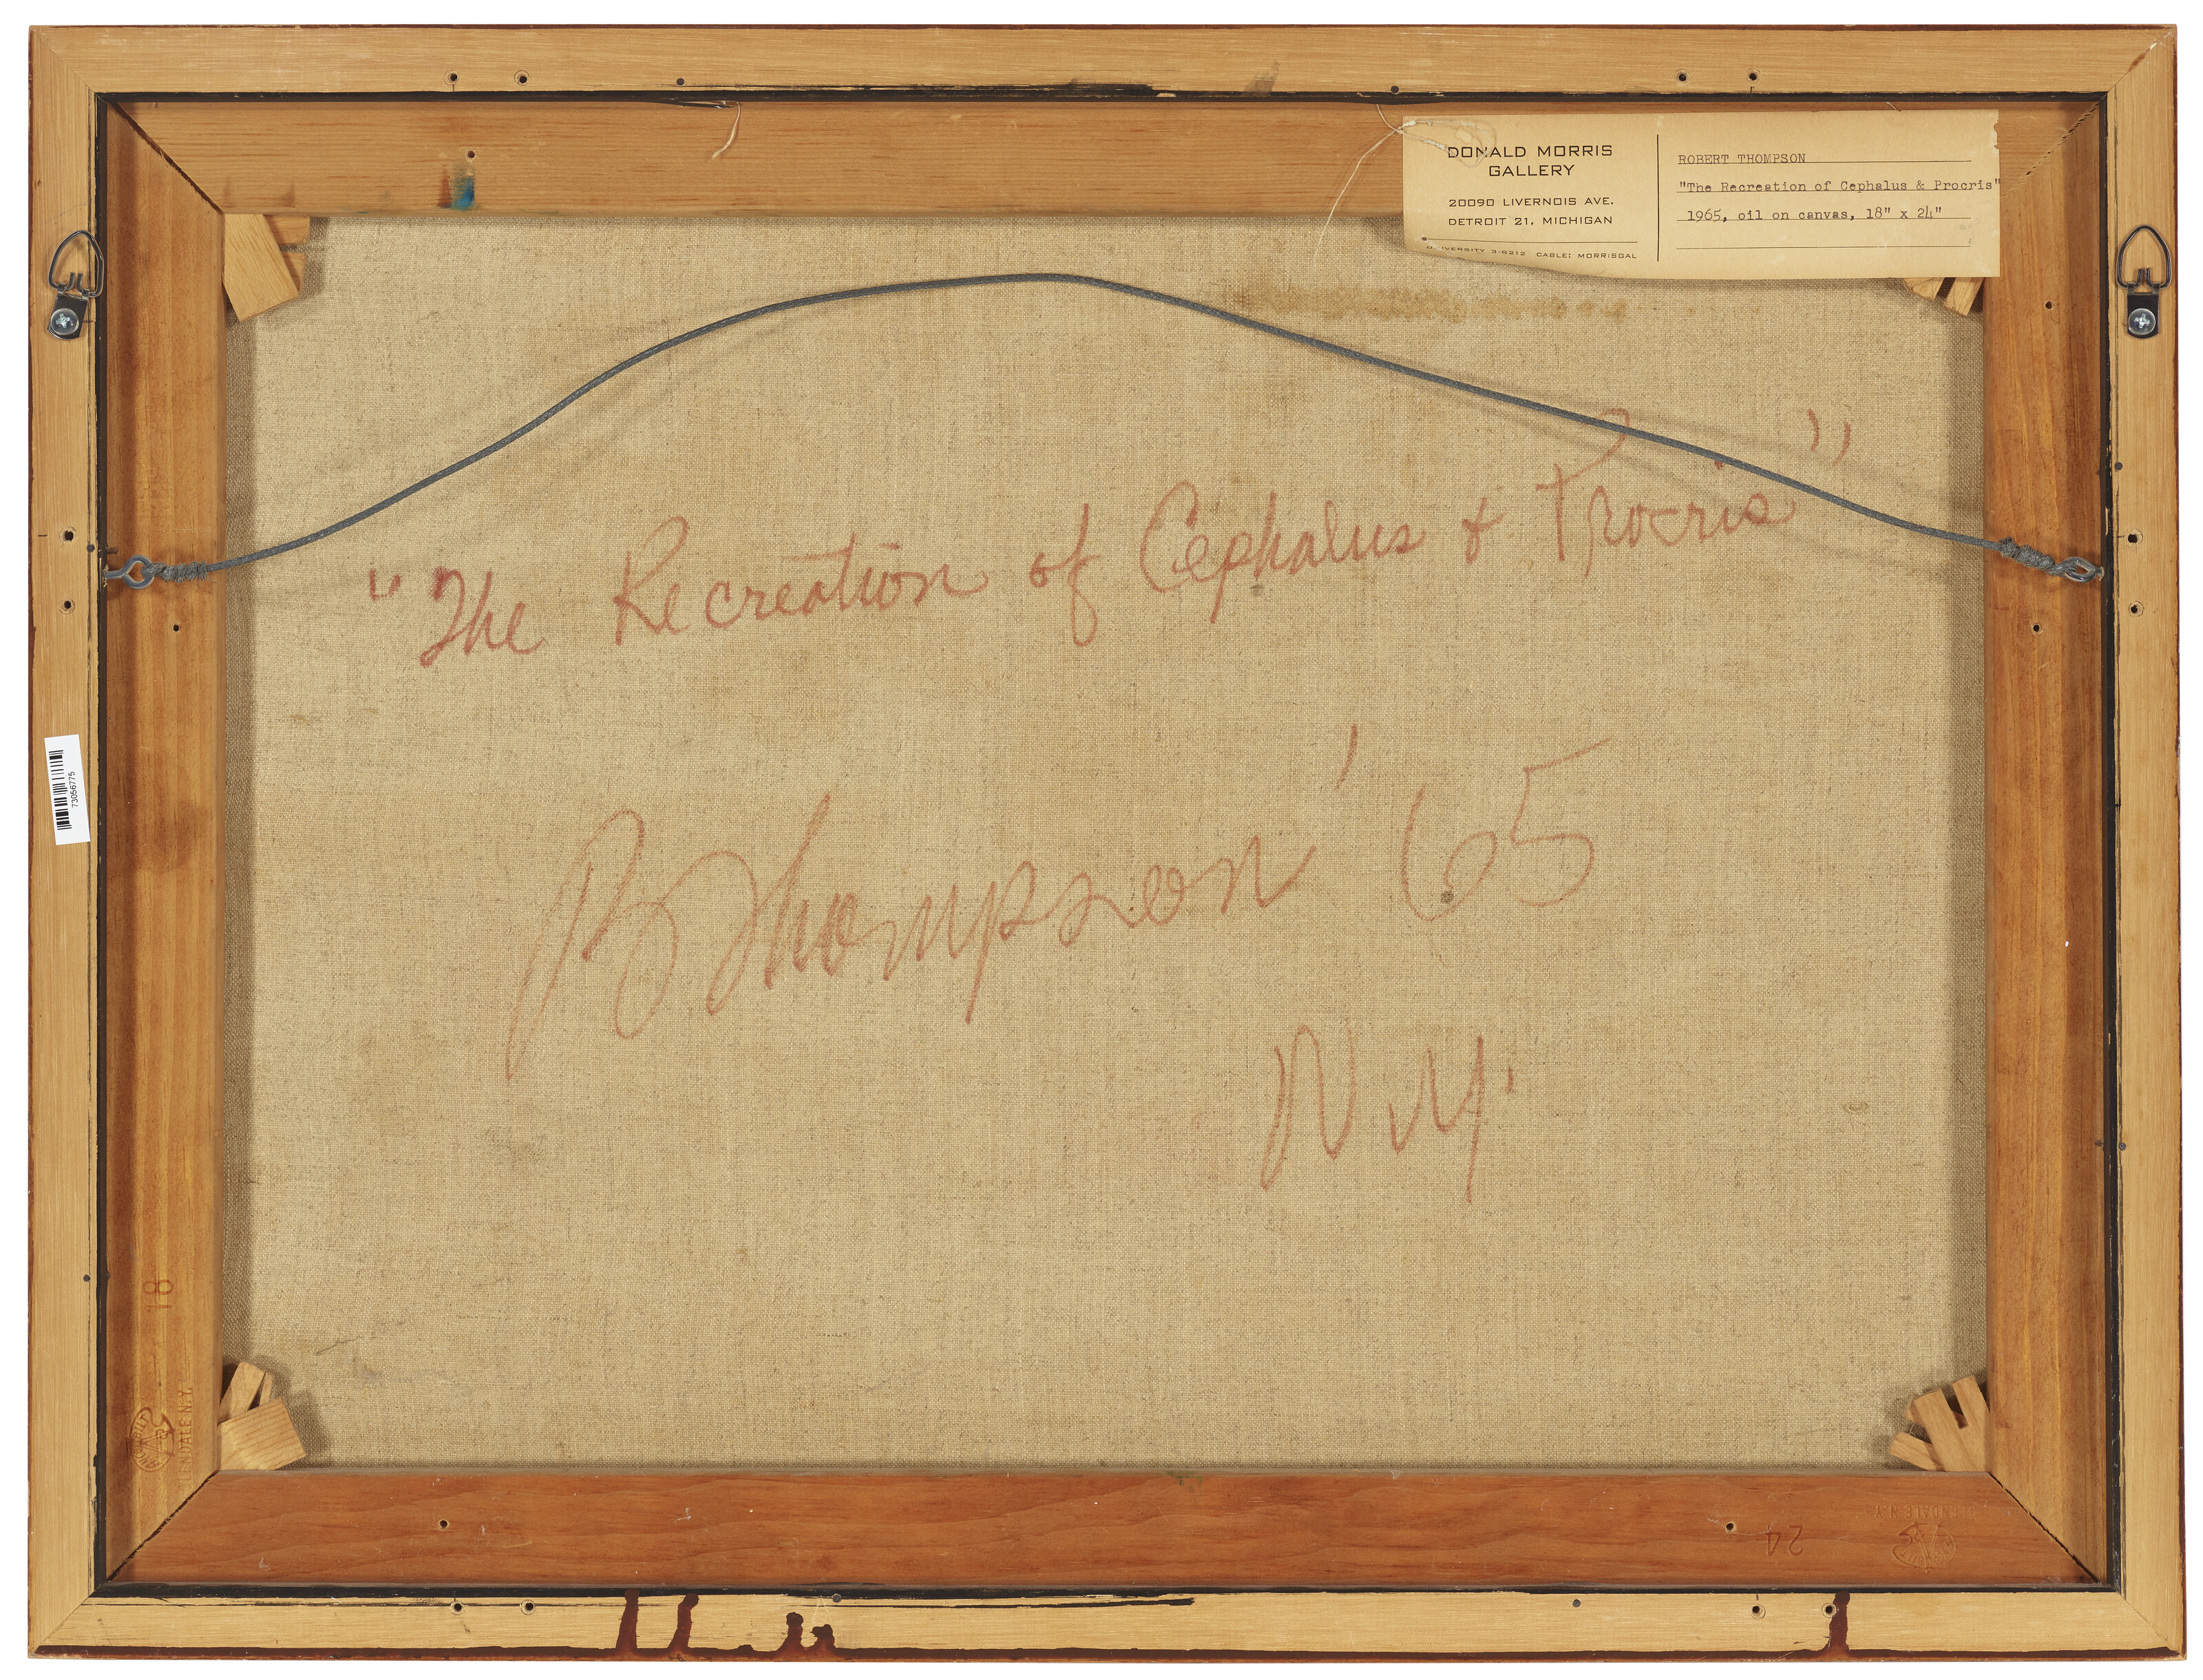 DONALD MORRIS
GALLERY
20090 LIVERNOIS AVE.
DETROIT 21, MICHIGAN
UNIVERSITY 3-8212 CABLE: MORRISGAL
ROBERT THOMPSON
"The Recreation of Cephalus & Procris"
1965, oil on canvas, 18" x 24"
"The Recreation of Cephalus & Procris"
B Thompson '65
N.Y.
73056775
18
GLENDALE N.Y.
24
GLENDALE N.Y.